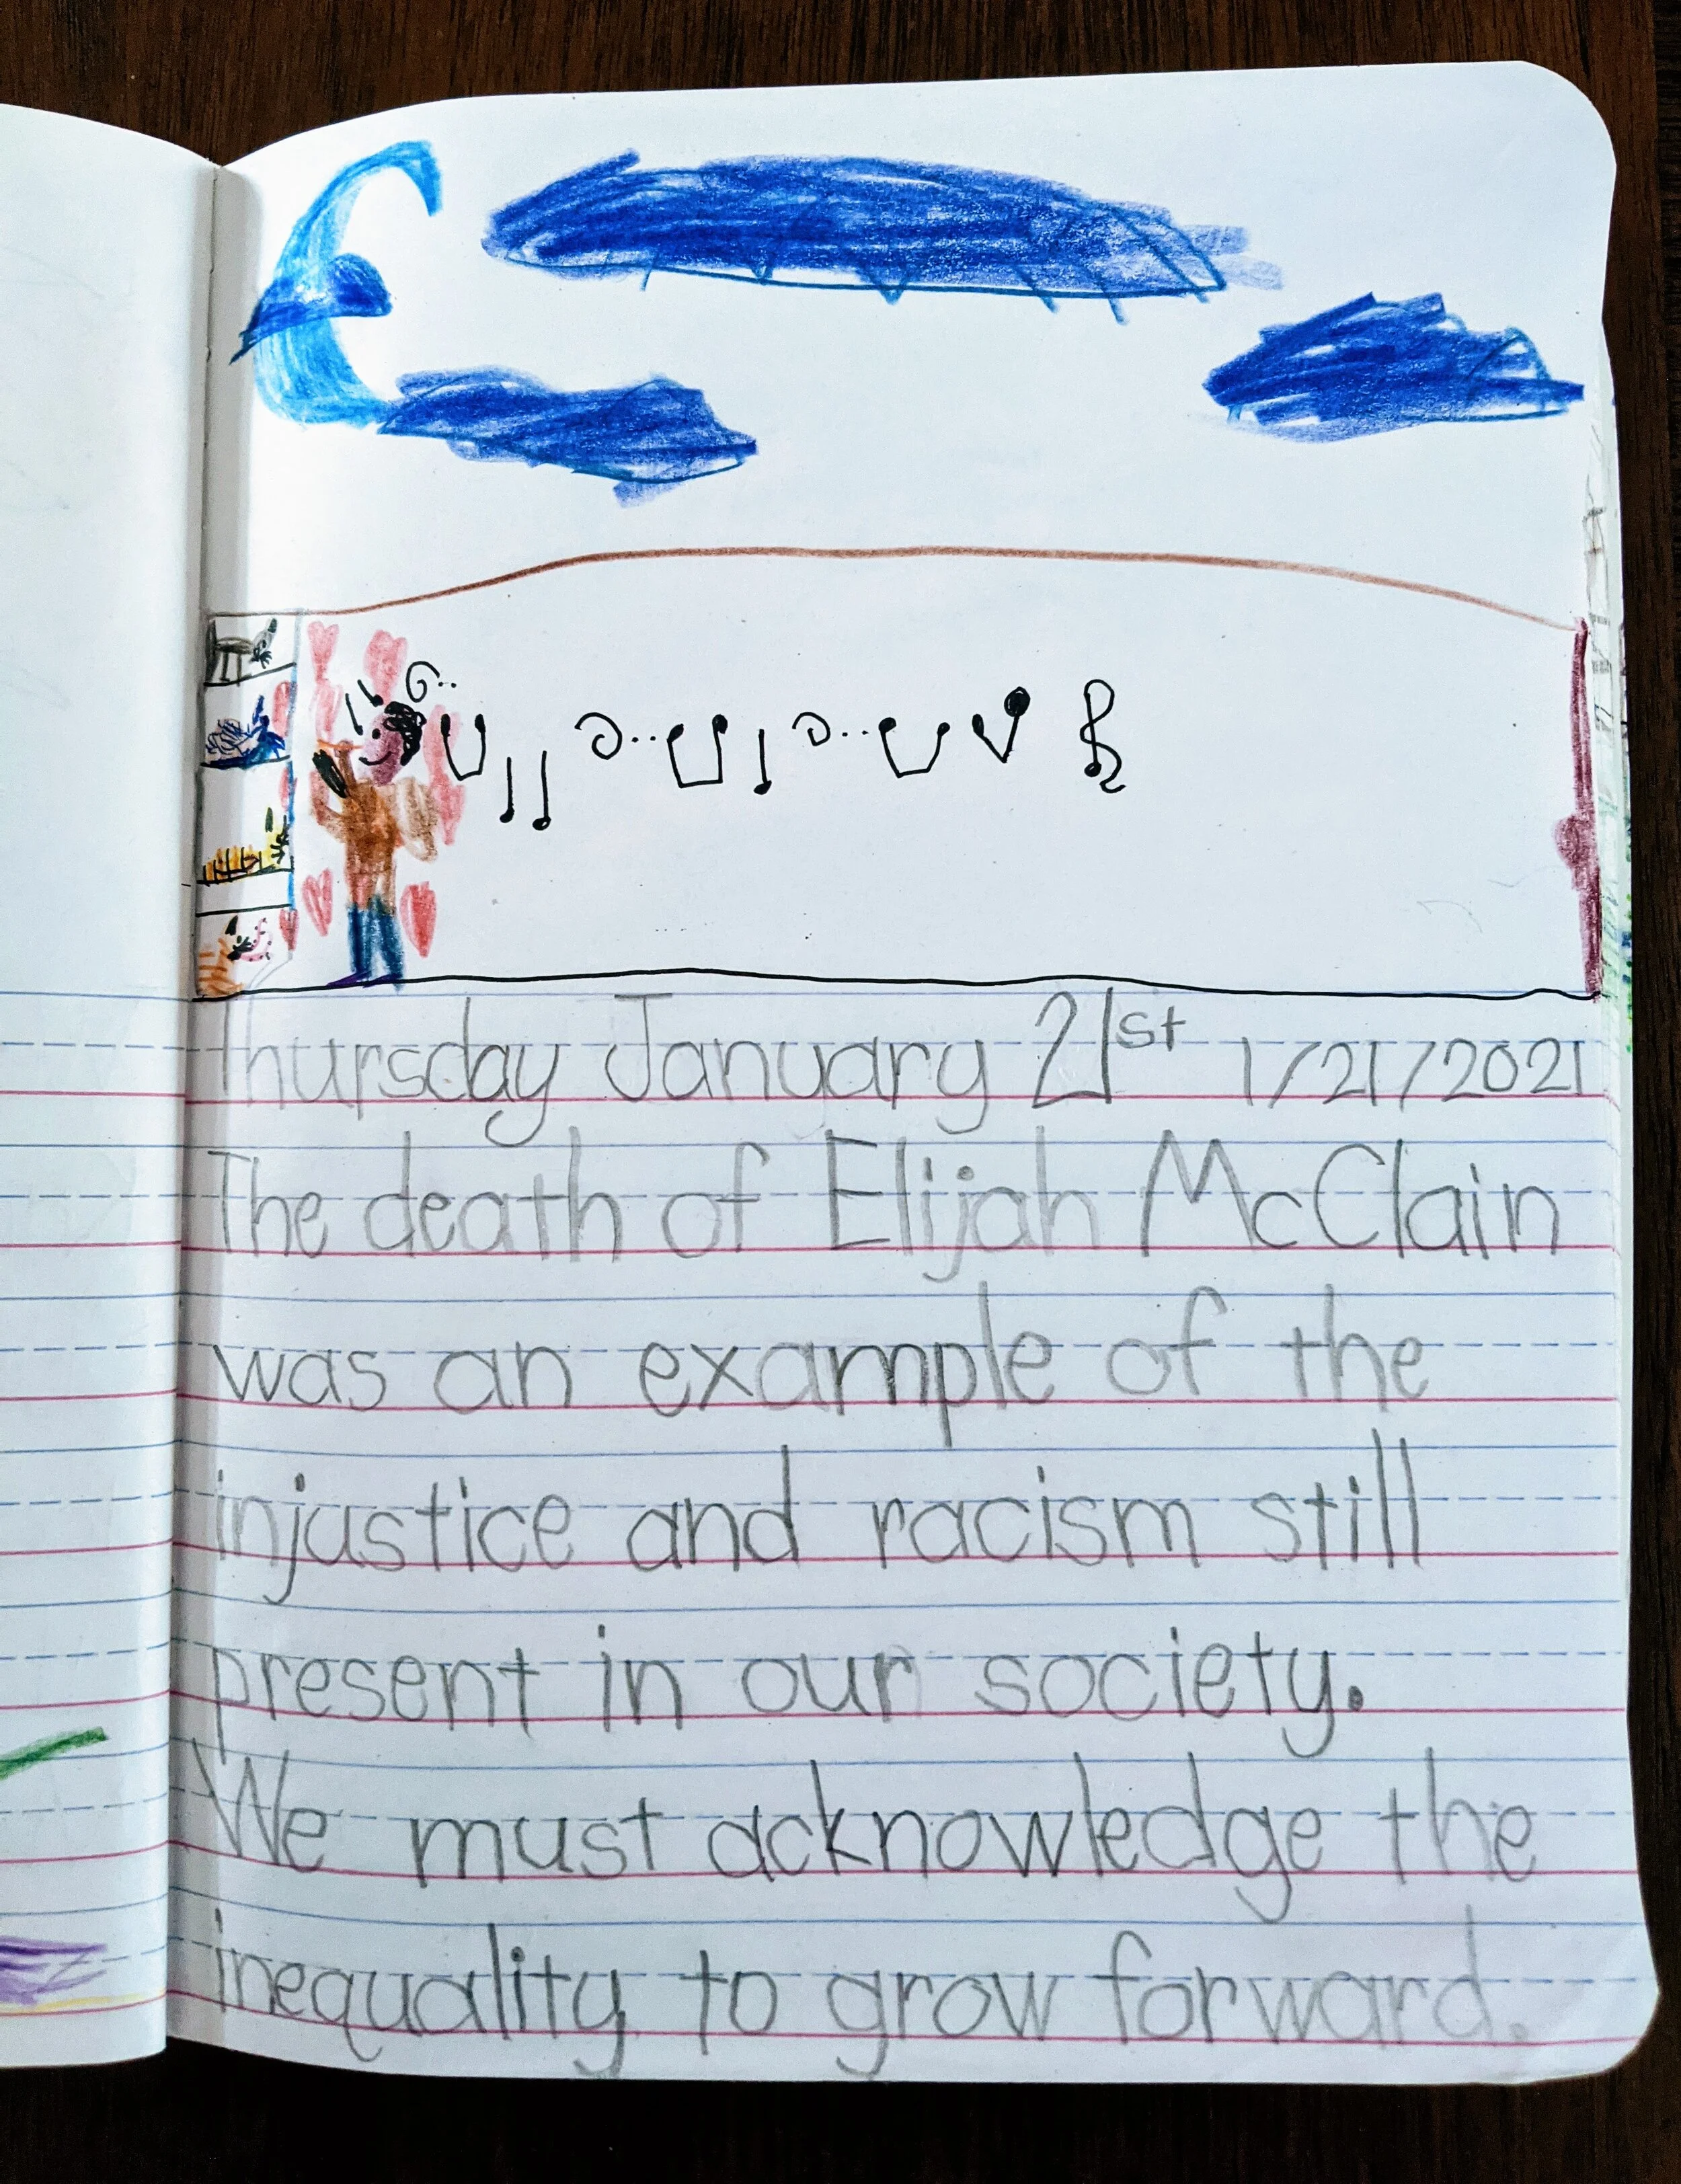 Thursday January 21st 1/21/2021
The death of Elijah McClain
was an example of the
injustice and racism still
present in our society.
We must acknowledge the
inequality to grow forward.